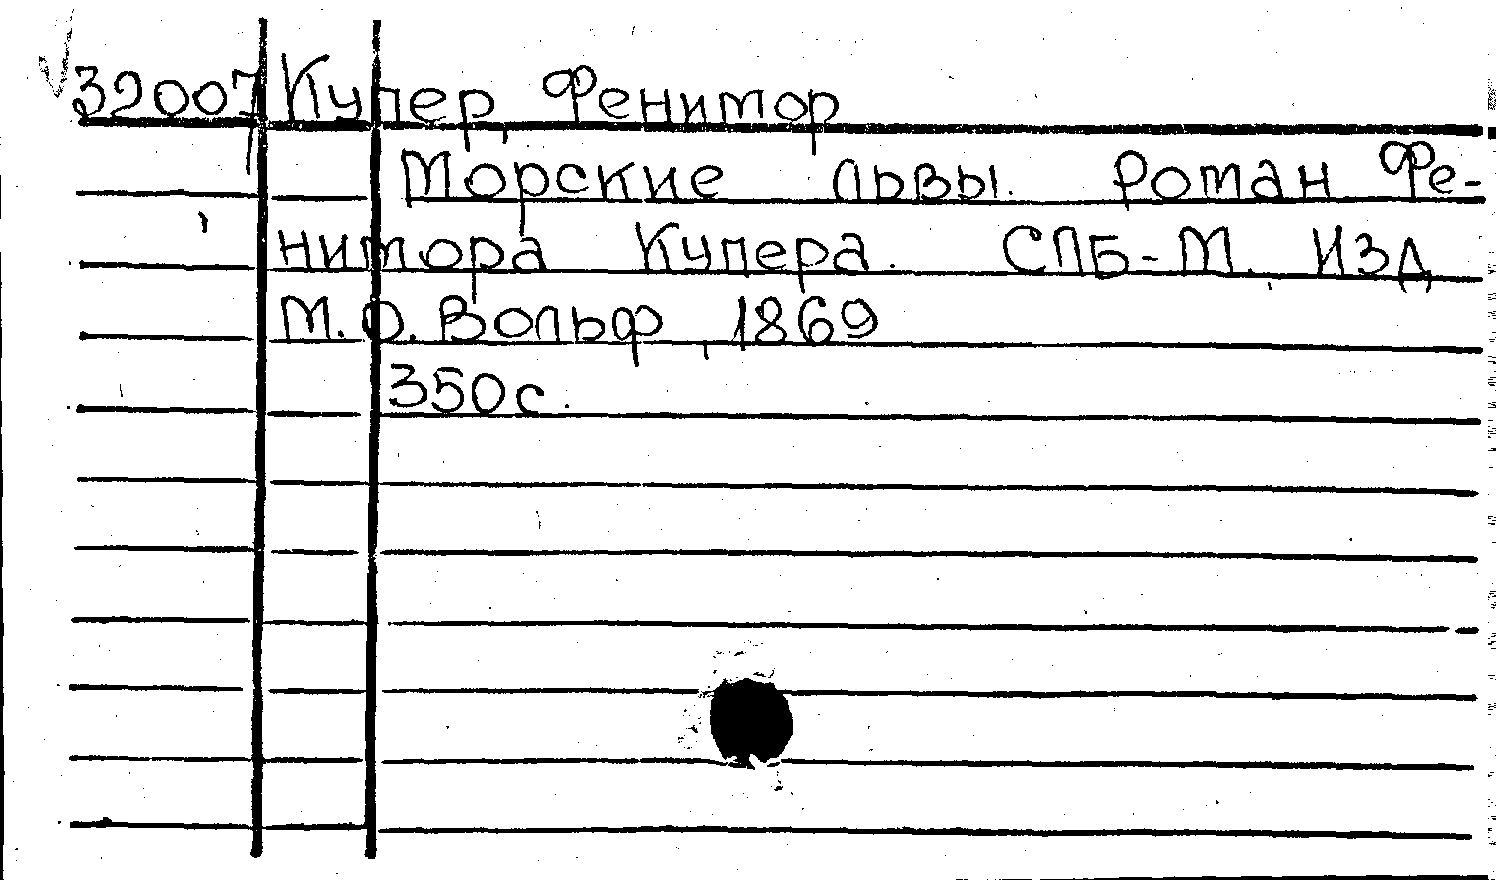 32007 Купер, Фенитор
Морские львы. Роман Фе-
нитора Купера. СПБ-М. Изд
М.О. Вольф, 1869
350с.